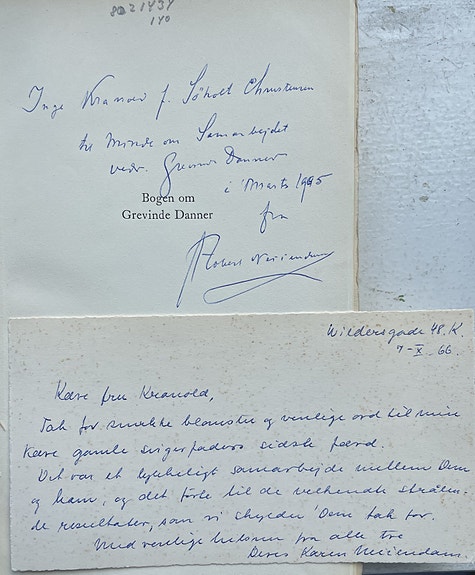 8021434
140
Inge Kranold f. Søholt Christensen
til Minde om Samarbejdet
vedr. Grevinde Danner
i Marts 1965
Bogen om
Grevinde Danner
fra
Robert Neiiendam
Wildersgade 48. K.
7-X-66.
Kære fru Kranold,
Tak for smukke blomster og venlige ord til min
kære gamle svigerfaders sidste færd.
Det var et lykkeligt samarbejde mellem Dem
og ham, og det førte til de velkendte strålen-
de resultater, som vi skylder Dem tak for.
Med venlige hilsner fra alle tre
Deres Karen Neiiendam.